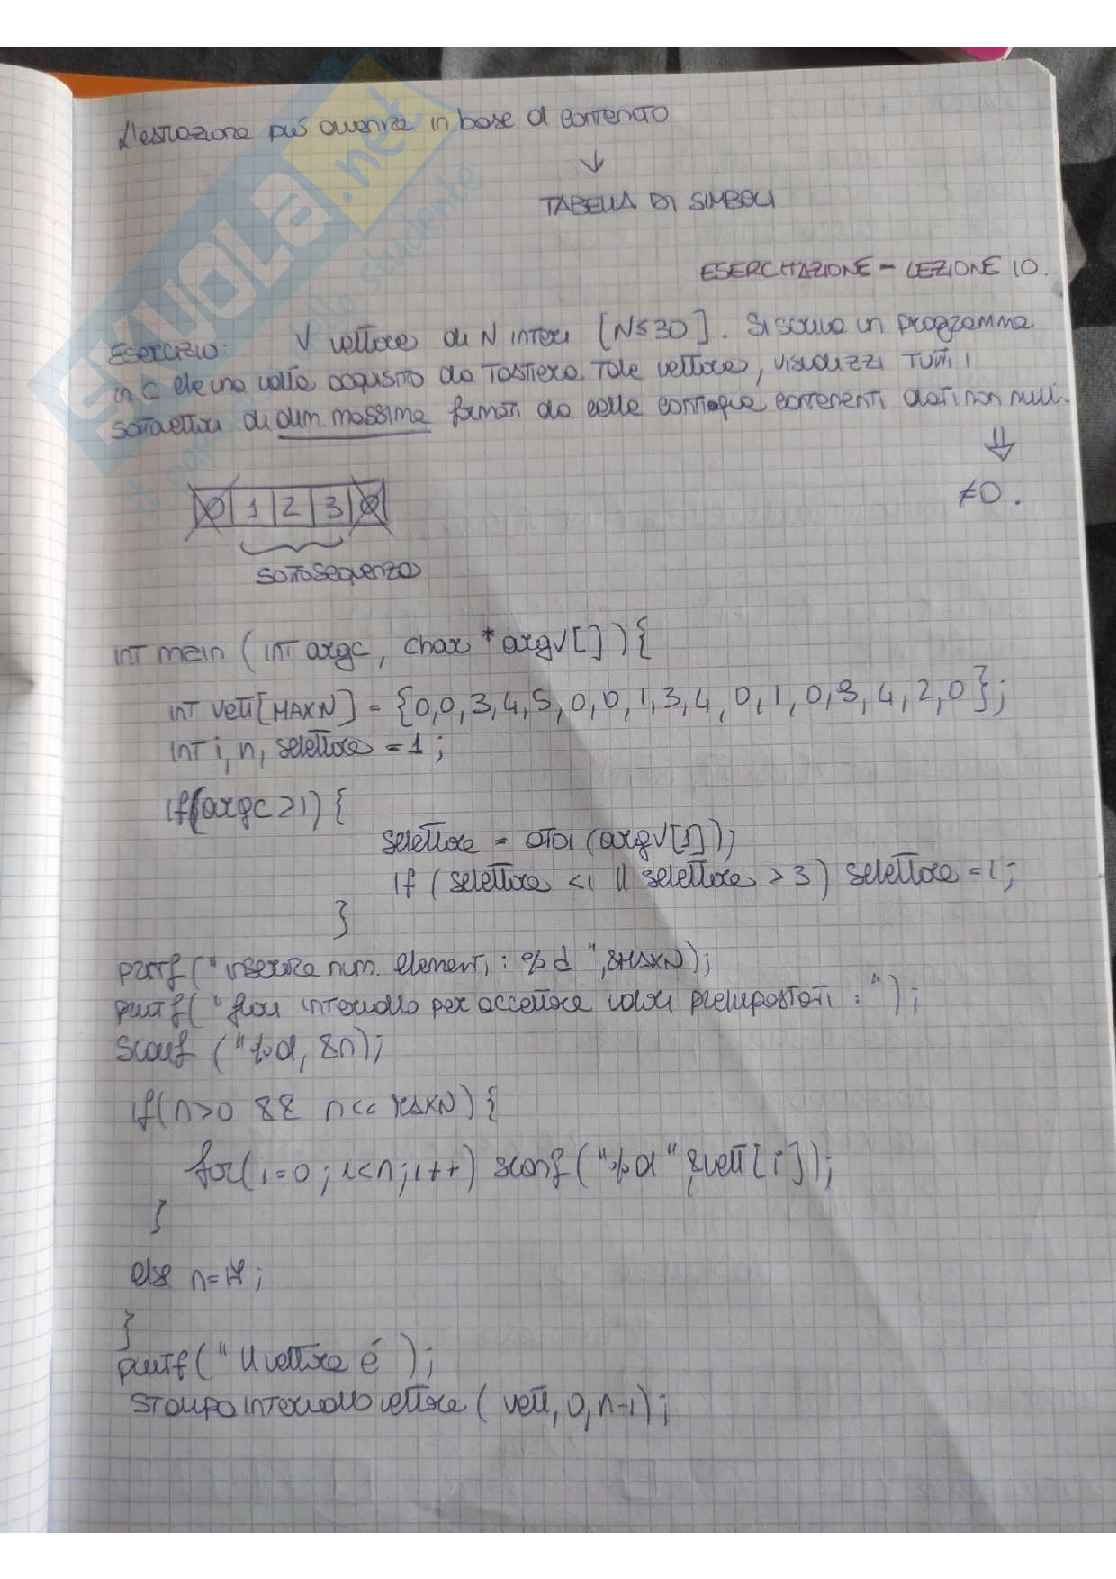 L'estrazione può avvenire in base al contenuto
↓
TABELLA DI SIMBOLI
ESERCITAZIONE - LEZIONE 10.
ESERCIZIO: V vettore di N interi [N≤30]. Si scriva un programma
in C che una volta acquisito da tastiera tale vettore, visualizzi TUTTI i
sottovettori di dim. massima formati da celle contigue contenenti dati non nulli.
⇓
≠0.
0 1 2 3 0
SOTTOSEQUENZA
int main (int argc, char *argv[]){
int vett[MAXN] = {0,0,3,4,5,0,0,1,3,4,0,1,0,3,4,2,0};
int i, n, selettore = 1;
if(argc>1){
selettore = atoi (argv[1]);
if (selettore <1 || selettore > 3) selettore = 1;
}
printf ("inserire num. elementi : %d ", &MAXN);
printf(" fuori intervallo per accettare valori preimpostati : ");
scanf ("%d, &n);
if(n>0 && n<< MAXN){
for(i=0; i<n; i++) scanf("%d" &vett[i]);
}
else n=17;
}
printf(" Il vettore è );
stampaintervallovettore ( vett, 0, n-1);
SKUOLA.net